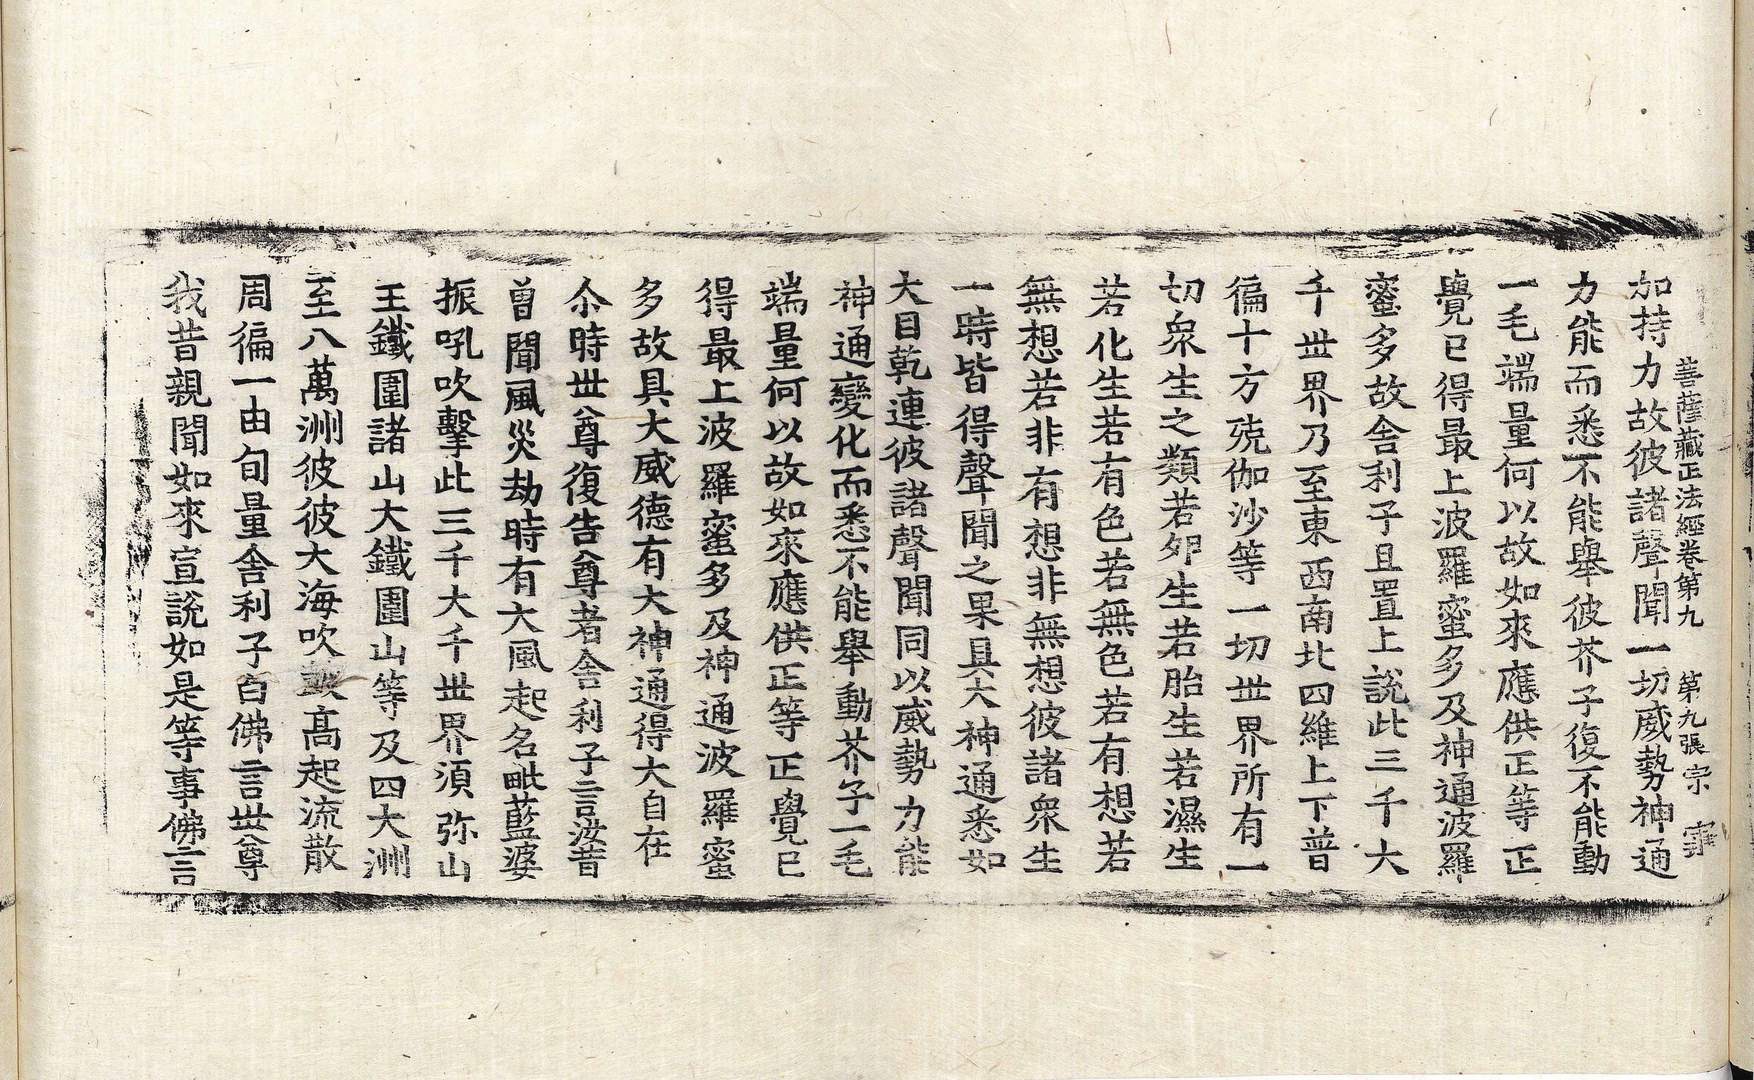 菩薩藏正法經卷第九　第九張　宗
加持力故彼諸聲聞一切威勢神通
力能而悉不能舉彼芥子復不能動
一毛端量何以故如來應供正等正
覺已得最上波羅蜜多及神通波羅
蜜多故舍利子且置上說此三千大
千世界乃至東西南北四維上下普
徧十方殑伽沙等一切世界所有一
切衆生之類若卵生若胎生若濕生
若化生若有色若無色若有想若
無想若非有想非無想彼諸衆生
一時皆得聲聞之果具大神通悉如
大目乾連彼諸聲聞同以威勢力能
神通變化而悉不能舉動芥子一毛
端量何以故如來應供正等正覺已
得最上波羅蜜多及神通波羅蜜
多故具大威德有大神通得大自在
尒時世尊復告尊者舍利子言汝昔
曾聞風災劫時有大風起名毗藍婆
振吼吹擊此三千大千世界須弥山
王鐵圍諸山大鐵圍山等及四大洲
至八萬洲彼彼大海吹鼓高起流散
周徧一由旬量舍利子白佛言世尊
我昔親聞如來宣說如是等事佛言